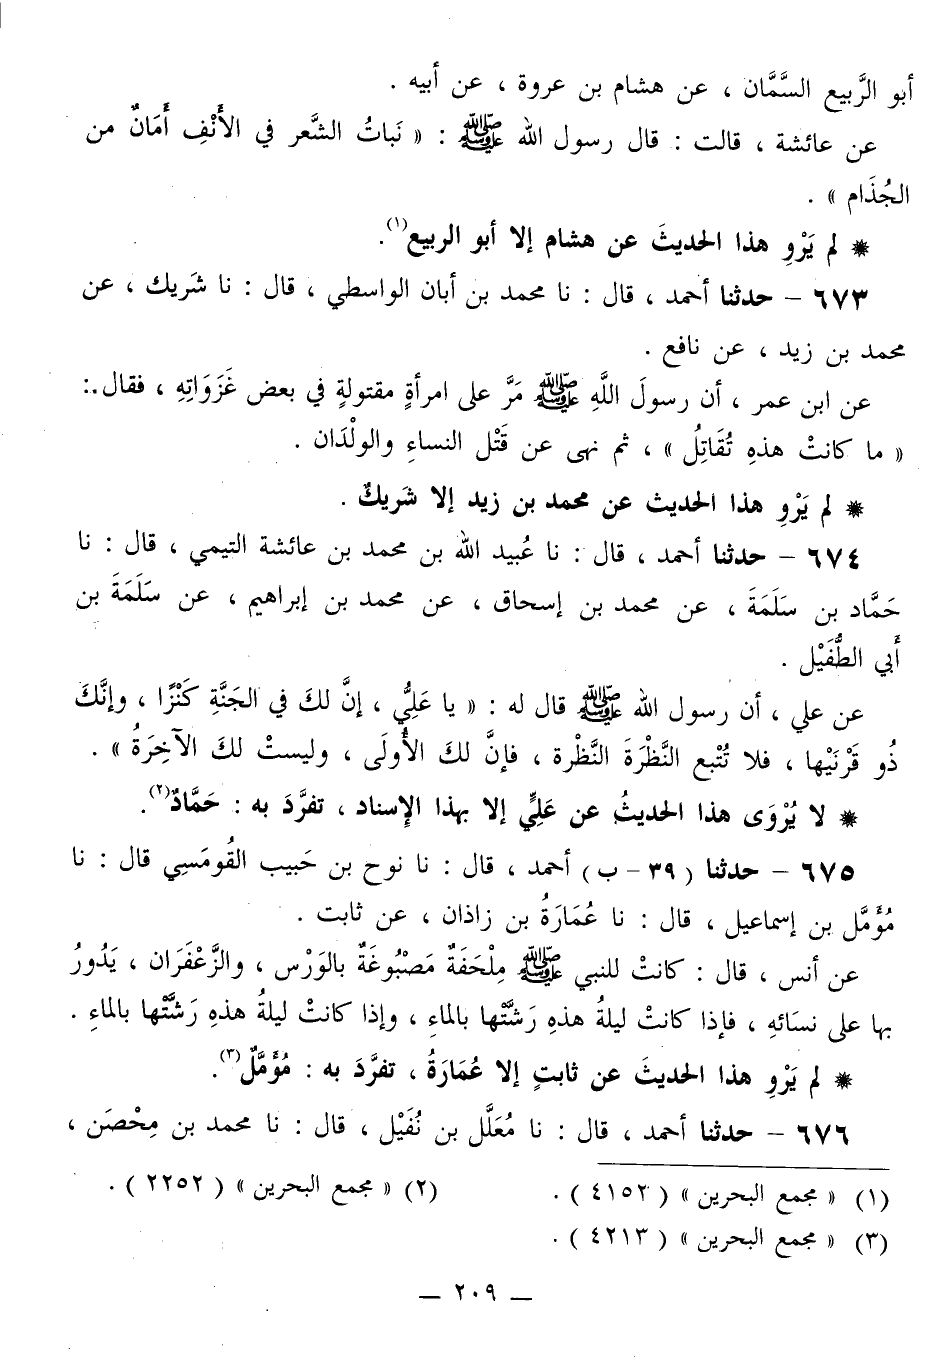 أبو الرَّبيع السَّمَّان ، عن هشام بن عروة ، عن أبيه .
عن عائشة ، قالت : قال رسول الله ﷺ : « نَباتُ الشَّعر في الأَنْفِ أَمَانٌ من
الجُذَام » .
* لم يَرْوِ هذا الحديثَ عن هشام إلا أبو الربيع(١).
٦٧٣ – حدثنا أحمد ، قال : نا محمد بن أبان الواسطي ، قال : نا شَريك ، عن
محمد بن زيد ، عن نافع .
عن ابن عمر ، أن رسولَ اللَّهِ ﷺ مَرَّ على امرأةٍ مقتولةٍ في بعض غَزَوَاتِهِ ، فقال :
« ما كانتْ هذهِ تُقَاتِلُ » ، ثم نهى عن قَتْل النساءِ والولْدَان .
* لم يَرْوِ هذا الحديث عن محمد بن زيد إلا شَريكٌ .
٦٧٤ – حدثنا أحمد ، قال : نا عُبيد الله بن محمد بن عائشة التيمي ، قال : نا
حَمَّاد بن سَلَمَةَ ، عن محمد بن إسحاق ، عن محمد بن إبراهيم ، عن سَلَمَةَ بن
أَبي الطُّفَيْل .
عن علي ، أن رسول الله ﷺ قال له : « يا عَلِيُّ ، إنَّ لكَ في الجَنَّةِ كَنْزًا ، وإنَّكَ
ذُو قَرْنَيْها ، فلا تُتْبع النَّظْرَةَ النَّظْرة ، فإنَّ لكَ الأُولَى ، وليستْ لكَ الآخِرَةُ » .
* لا يُرْوَى هذا الحديثُ عن عَلِيٍّ إلا بهذا الإسناد ، تفرَّدَ به : حَمَّادٌ(٢).
٦٧٥ – حدثنا ( ٣٩ – ب ) أحمد ، قال : نا نوح بن حَبيب القُومَسِي قال : نا
مُؤَمَّل بن إسماعيل ، قال : نا عُمَارَةُ بن زاذان ، عن ثابت .
عن أنس ، قال : كانتْ للنبي ﷺ مِلْحَفَةٌ مَصْبُوغَةٌ بالوَرْس ، والزَّعْفَرَان ، يَدُورُ
بها على نسَائهِ ، فإذا كانتْ ليلةُ هذه رَشَّتْها بالماءِ ، وإذا كانتْ ليلةُ هذهِ رَشَّتْها بالماءِ .
* لم يَرْوِ هذا الحديثَ عن ثابتٍ إلا عُمَارَةُ ، تفرَّدَ به : مُؤَمَّلٌ(٣).
٦٧٦ – حدثنا أحمد ، قال : نا مُعَلَّل بن نُفَيْل ، قال : نا محمد بن مِحْصَن ،
(١) « مجمع البحرين » ( ٤١٥٢ ) . (٢) « مجمع البحرين » ( ٢٢٥٢ ) .
(٣) « مجمع البحرين » ( ٤٢١٣ ) .
– ٢٠٩ –